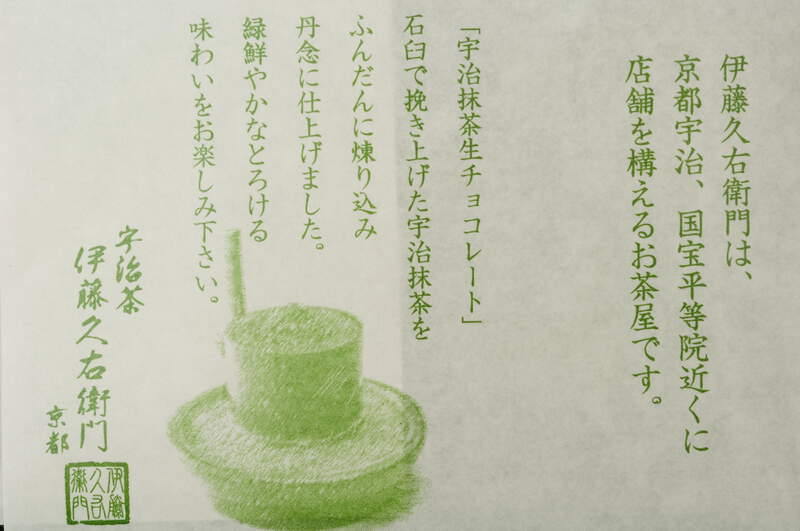 伊藤久右衛門は、
京都宇治、国宝平等院近くに
店舗を構えるお茶屋です。
「宇治抹茶生チョコレート」
石臼で挽き上げた宇治抹茶を
ふんだんに煉り込み
丹念に仕上げました。
緑鮮やかなとろける
味わいをお楽しみ下さい。
宇治茶
伊藤久右衛門
京都
伊藤
久右
衛門